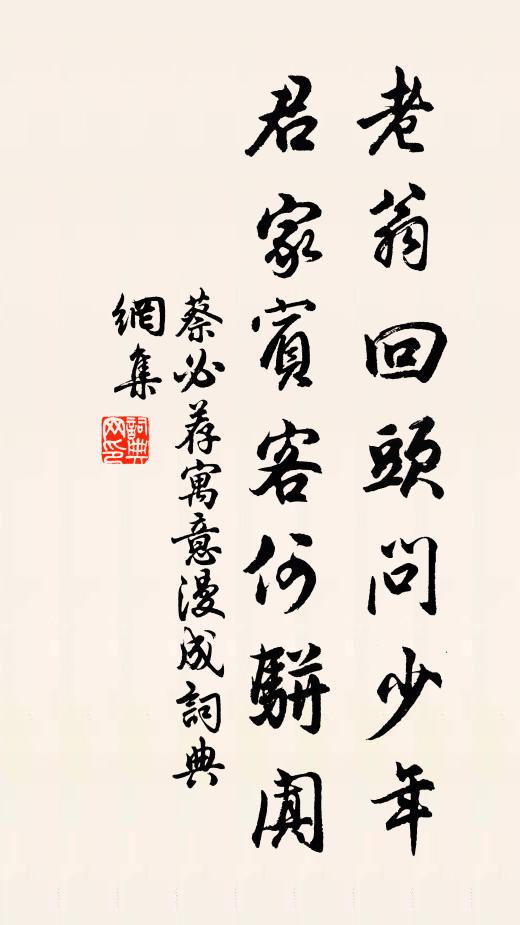 老翁回頭問少年
君家賓客何駢闐
蔡必荐寓意漫成詞典
網集
詞典網印